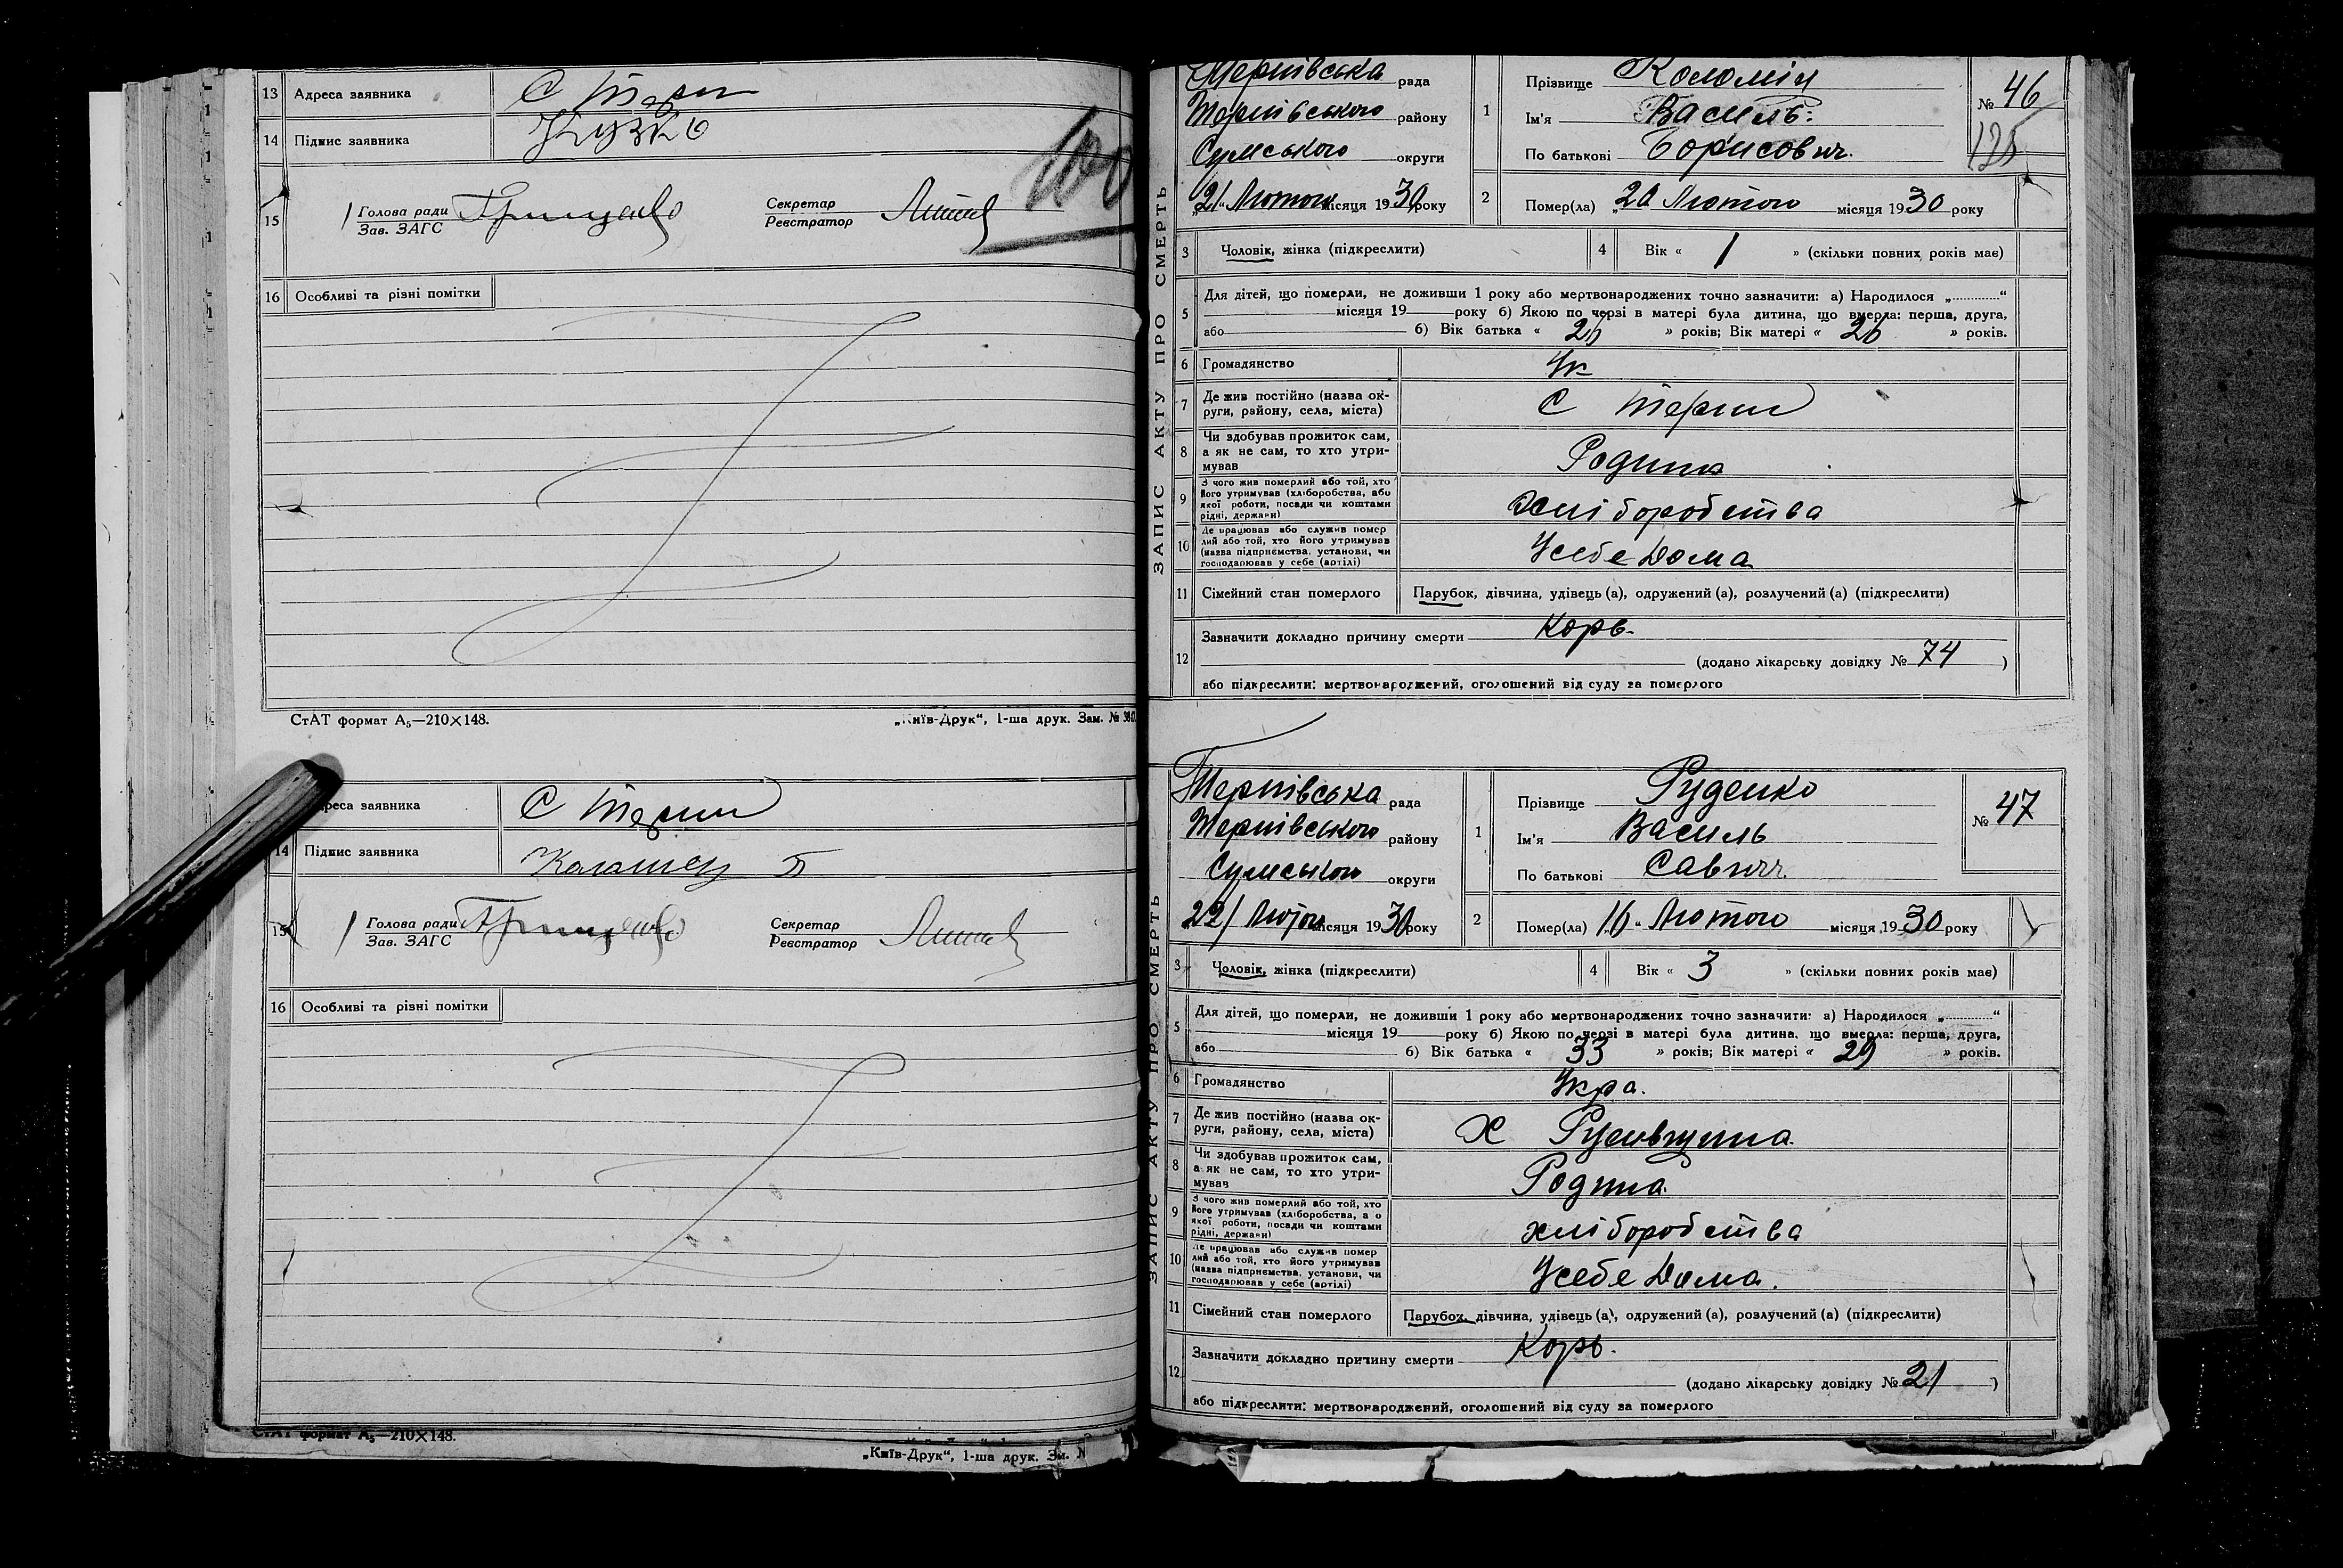 13 Адреса заявника С Терни
14 Підпис заявника Кузко
15 Голова ради
Зав. ЗАГС
Секретар
Реєстратор
16 Особливі та різні помітки
СтАТ формат А5—210×148. „Київ-Друк“, 1-ша друк. Зам. №
Адреса заявника С Терни
14 Підпис заявника
15 Голова ради
Зав. ЗАГС
Секретар
Реєстратор
16 Особливі та різні помітки
СтАТ формат А5—210×148.
„Київ-Друк“, 1-ша друк. Зам. №
ЗАПИС АКТУ ПРО СМЕРТЬ
Тернівська рада
Тернівського району
Сумського округи
„21“ Лютого місяця 1930 року
1 Прізвище Коломієц
Ім'я Василь
По батькові Борисович.
№ 46
2 Помер(ла) „20 Лютого місяця 1930 року
3 Чоловік, жінка (підкреслити) 4 Вік « 1 » (скільки повних років має)
5 Для дітей, що померли, не доживши 1 року або мертвонароджених точно зазначити: а) Народилося „............“
місяця 19 року б) Якою по черзі в матері була дитина, що вмерла: перша, друга,
або б) Вік батька « » років; Вік матері « 26 » років.
6 Громадянство Ук
7 Де жив постійно (назва ок-
руги, району, села, міста) С Терни
8 Чи здобував прожиток сам,
а як не сам, то хто утри-
мував Родина
9 З чого жив померлий або той, хто
його утримував (хліборобства, або
якої роботи, посади чи коштами
рідні, держави) хліборобства
10 Де працював або служив помер
лий або той, хто його утримував
(назва підприємства, установи, чи
господарював у себе (артілі) Усебе дома
11 Сімейний стан померлого Парубок, дівчина, удівець (а), одружений (а), розлучений (а) (підкреслити)
12 Зазначити докладно причину смерти Корь.
(додано лікарську довідку № 74 )
або підкреслити: мертвонароджений, оголошений від суду за померлого
ЗАПИС АКТУ ПРО СМЕРТЬ
Тернівська рада
Тернівського району
Сумського округи
22 Лютого місяця 1930 року
1 Прізвище Руденко
Ім'я Василь
По батькові Савич.
№ 47
2 Помер(ла) 16 “ Лютого місяця 1930 року
3 Чоловік, жінка (підкреслити) 4 Вік « 3 » (скільки повних років має)
5 Для дітей, що померли, не доживши 1 року або мертвонароджених точно зазначити: а) Народилося „............“
місяця 19 року б) Якою по черзі в матері була дитина, що вмерла: перша, друга,
або б) Вік батька « 33 » років; Вік матері « 29 » років.
6 Громадянство Укра.
7 Де жив постійно (назва ок-
руги, району, села, міста) Х
8 Чи здобував прожиток сам,
а як не сам, то хто утри-
мував Родина
9 З чого жив померлий або той, хто
його утримував (хліборобства, а о
якої роботи, посади чи коштами
рідні, держави) хліборобства
10 Де працював або служив помер
лий або той, хто його утримував
(назва підприємства, установи, чи
господарював у себе (артілі) Усебе дома.
11 Сімейний стан померлого Парубок, дівчина, удівець (а), одружений (а), розлучений (а) (підкреслити)
12 Зазначити докладно причину смерти Корь.
(додано лікарську довідку № 21 )
або підкреслити: мертвонароджений, оголошений від суду за померлого